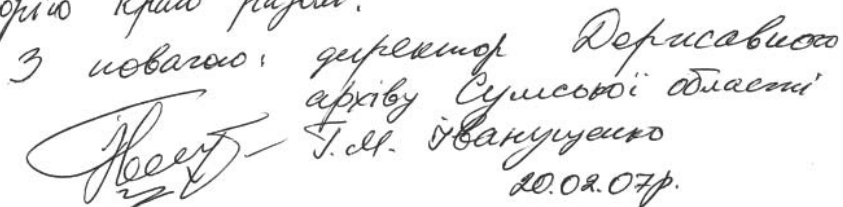 орію краю разом.
З повагою: директор Державного
архіву Сумської області
Г.М. Іванущенко
20.02.07р.